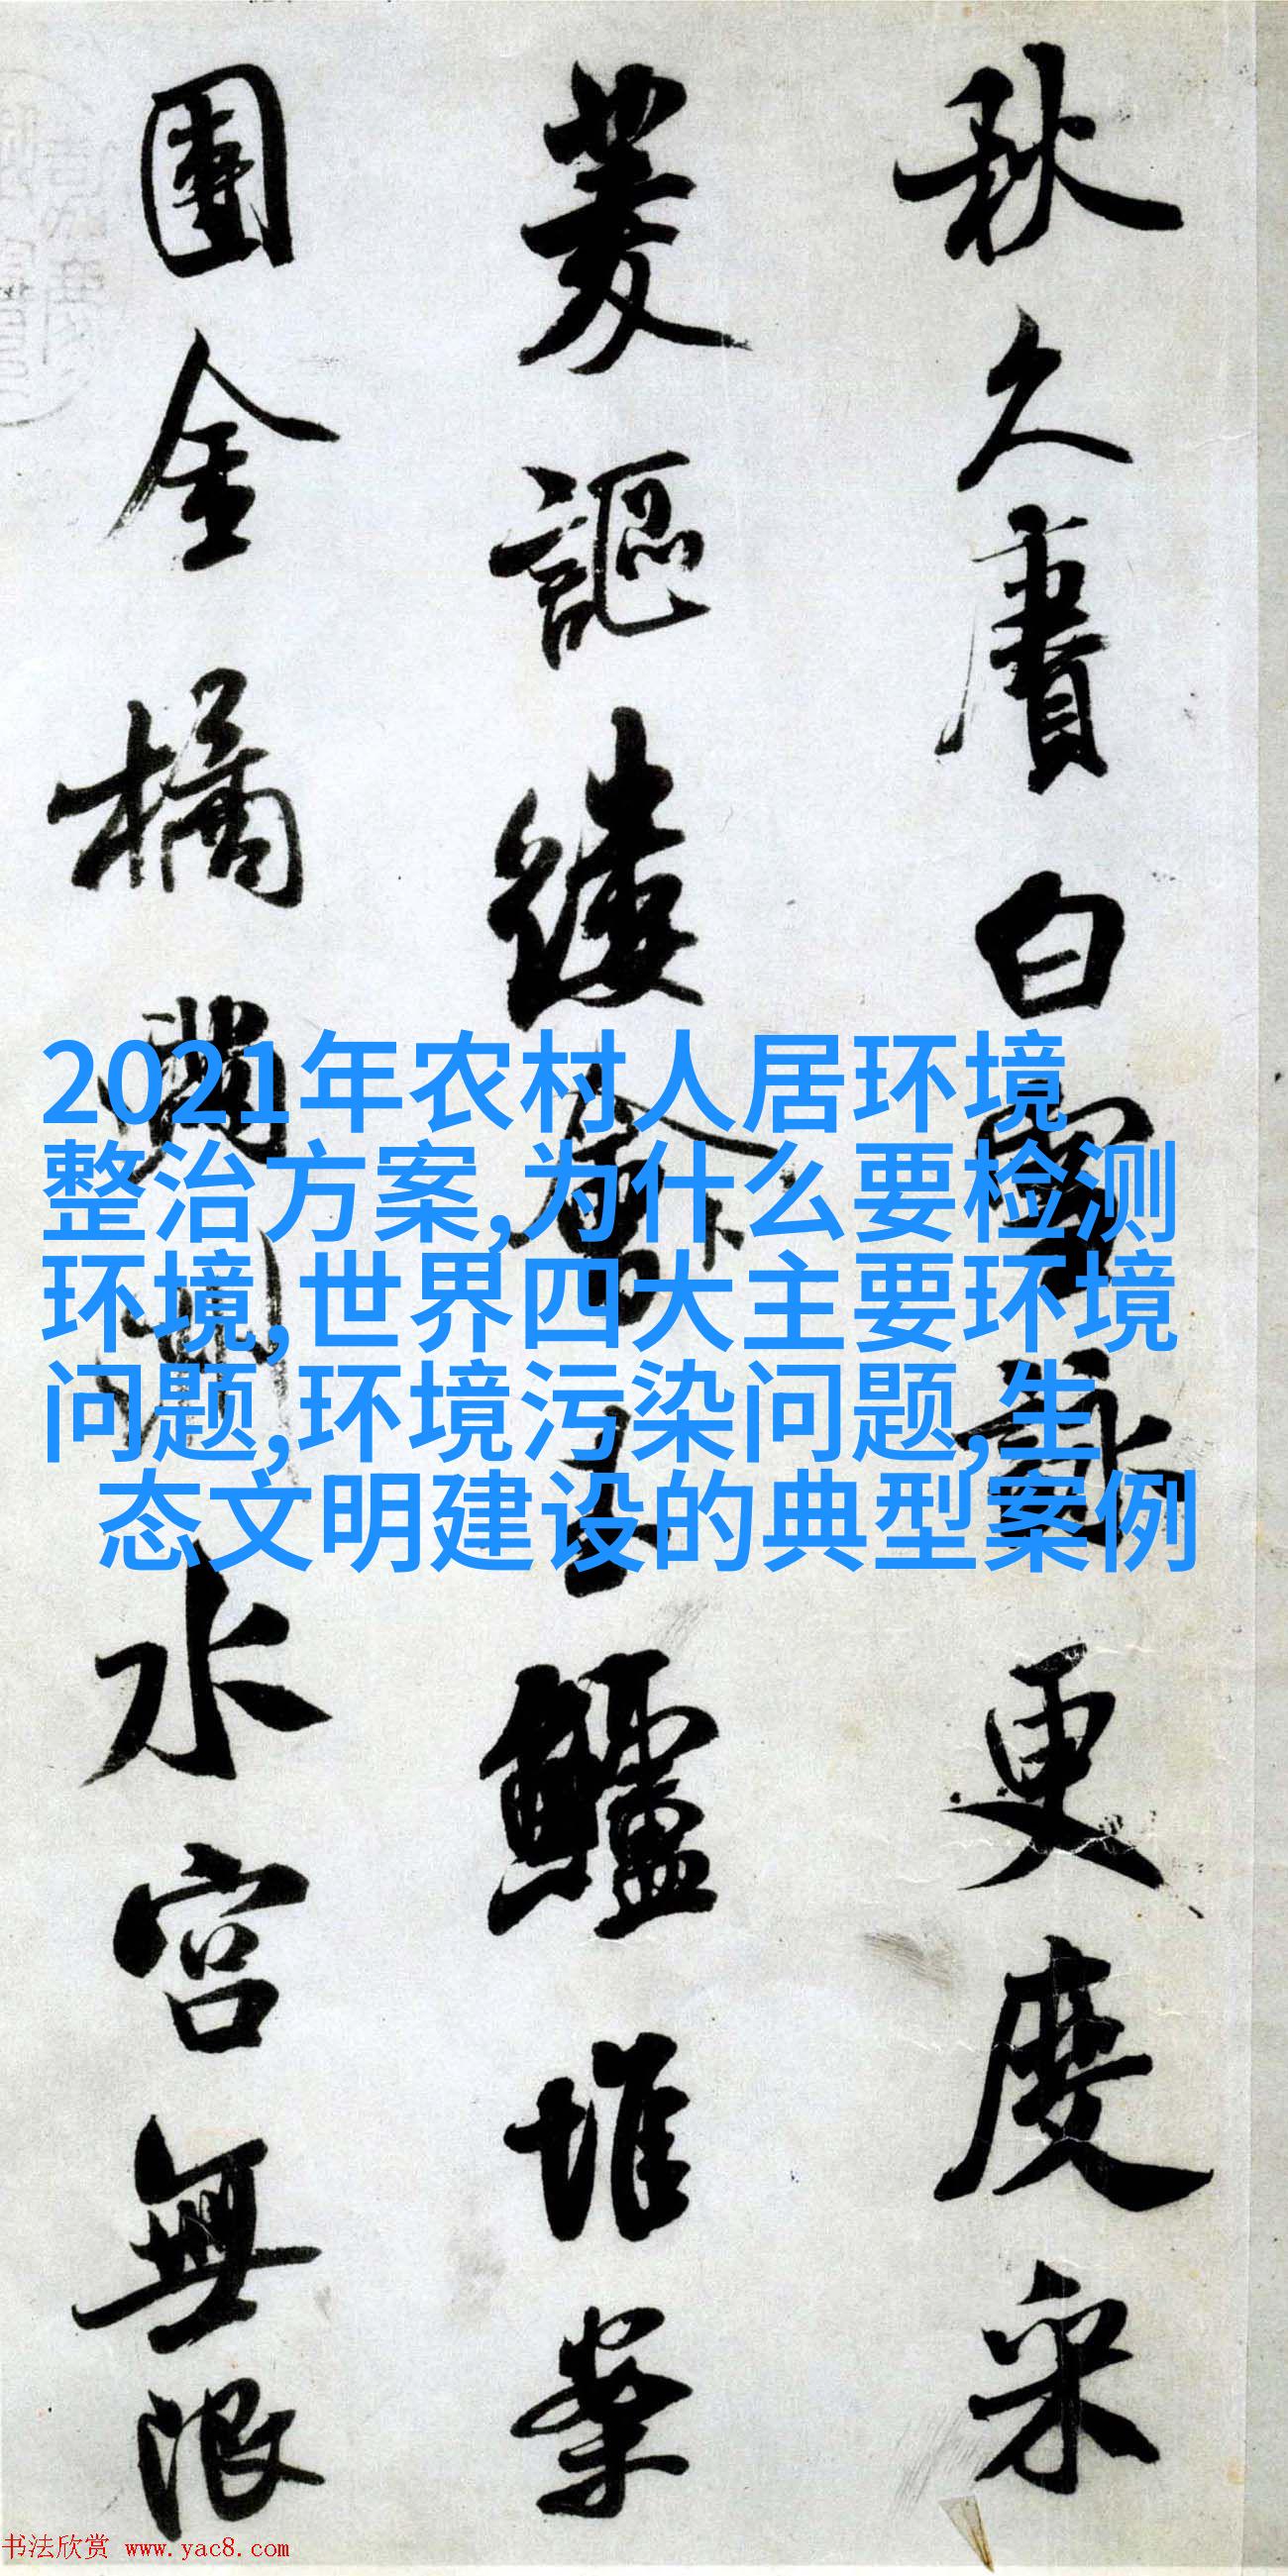 秋久賡白雪詠更度采
菱謳縷會玉鱸堆案
團金橘滿洲水宫無限
2021年农村人居环境
整治方案,为什么要检测
环境,世界四大主要环境
问题,环境污染问题,生
态文明建设的典型案例
书法欣赏 www.yac8.com